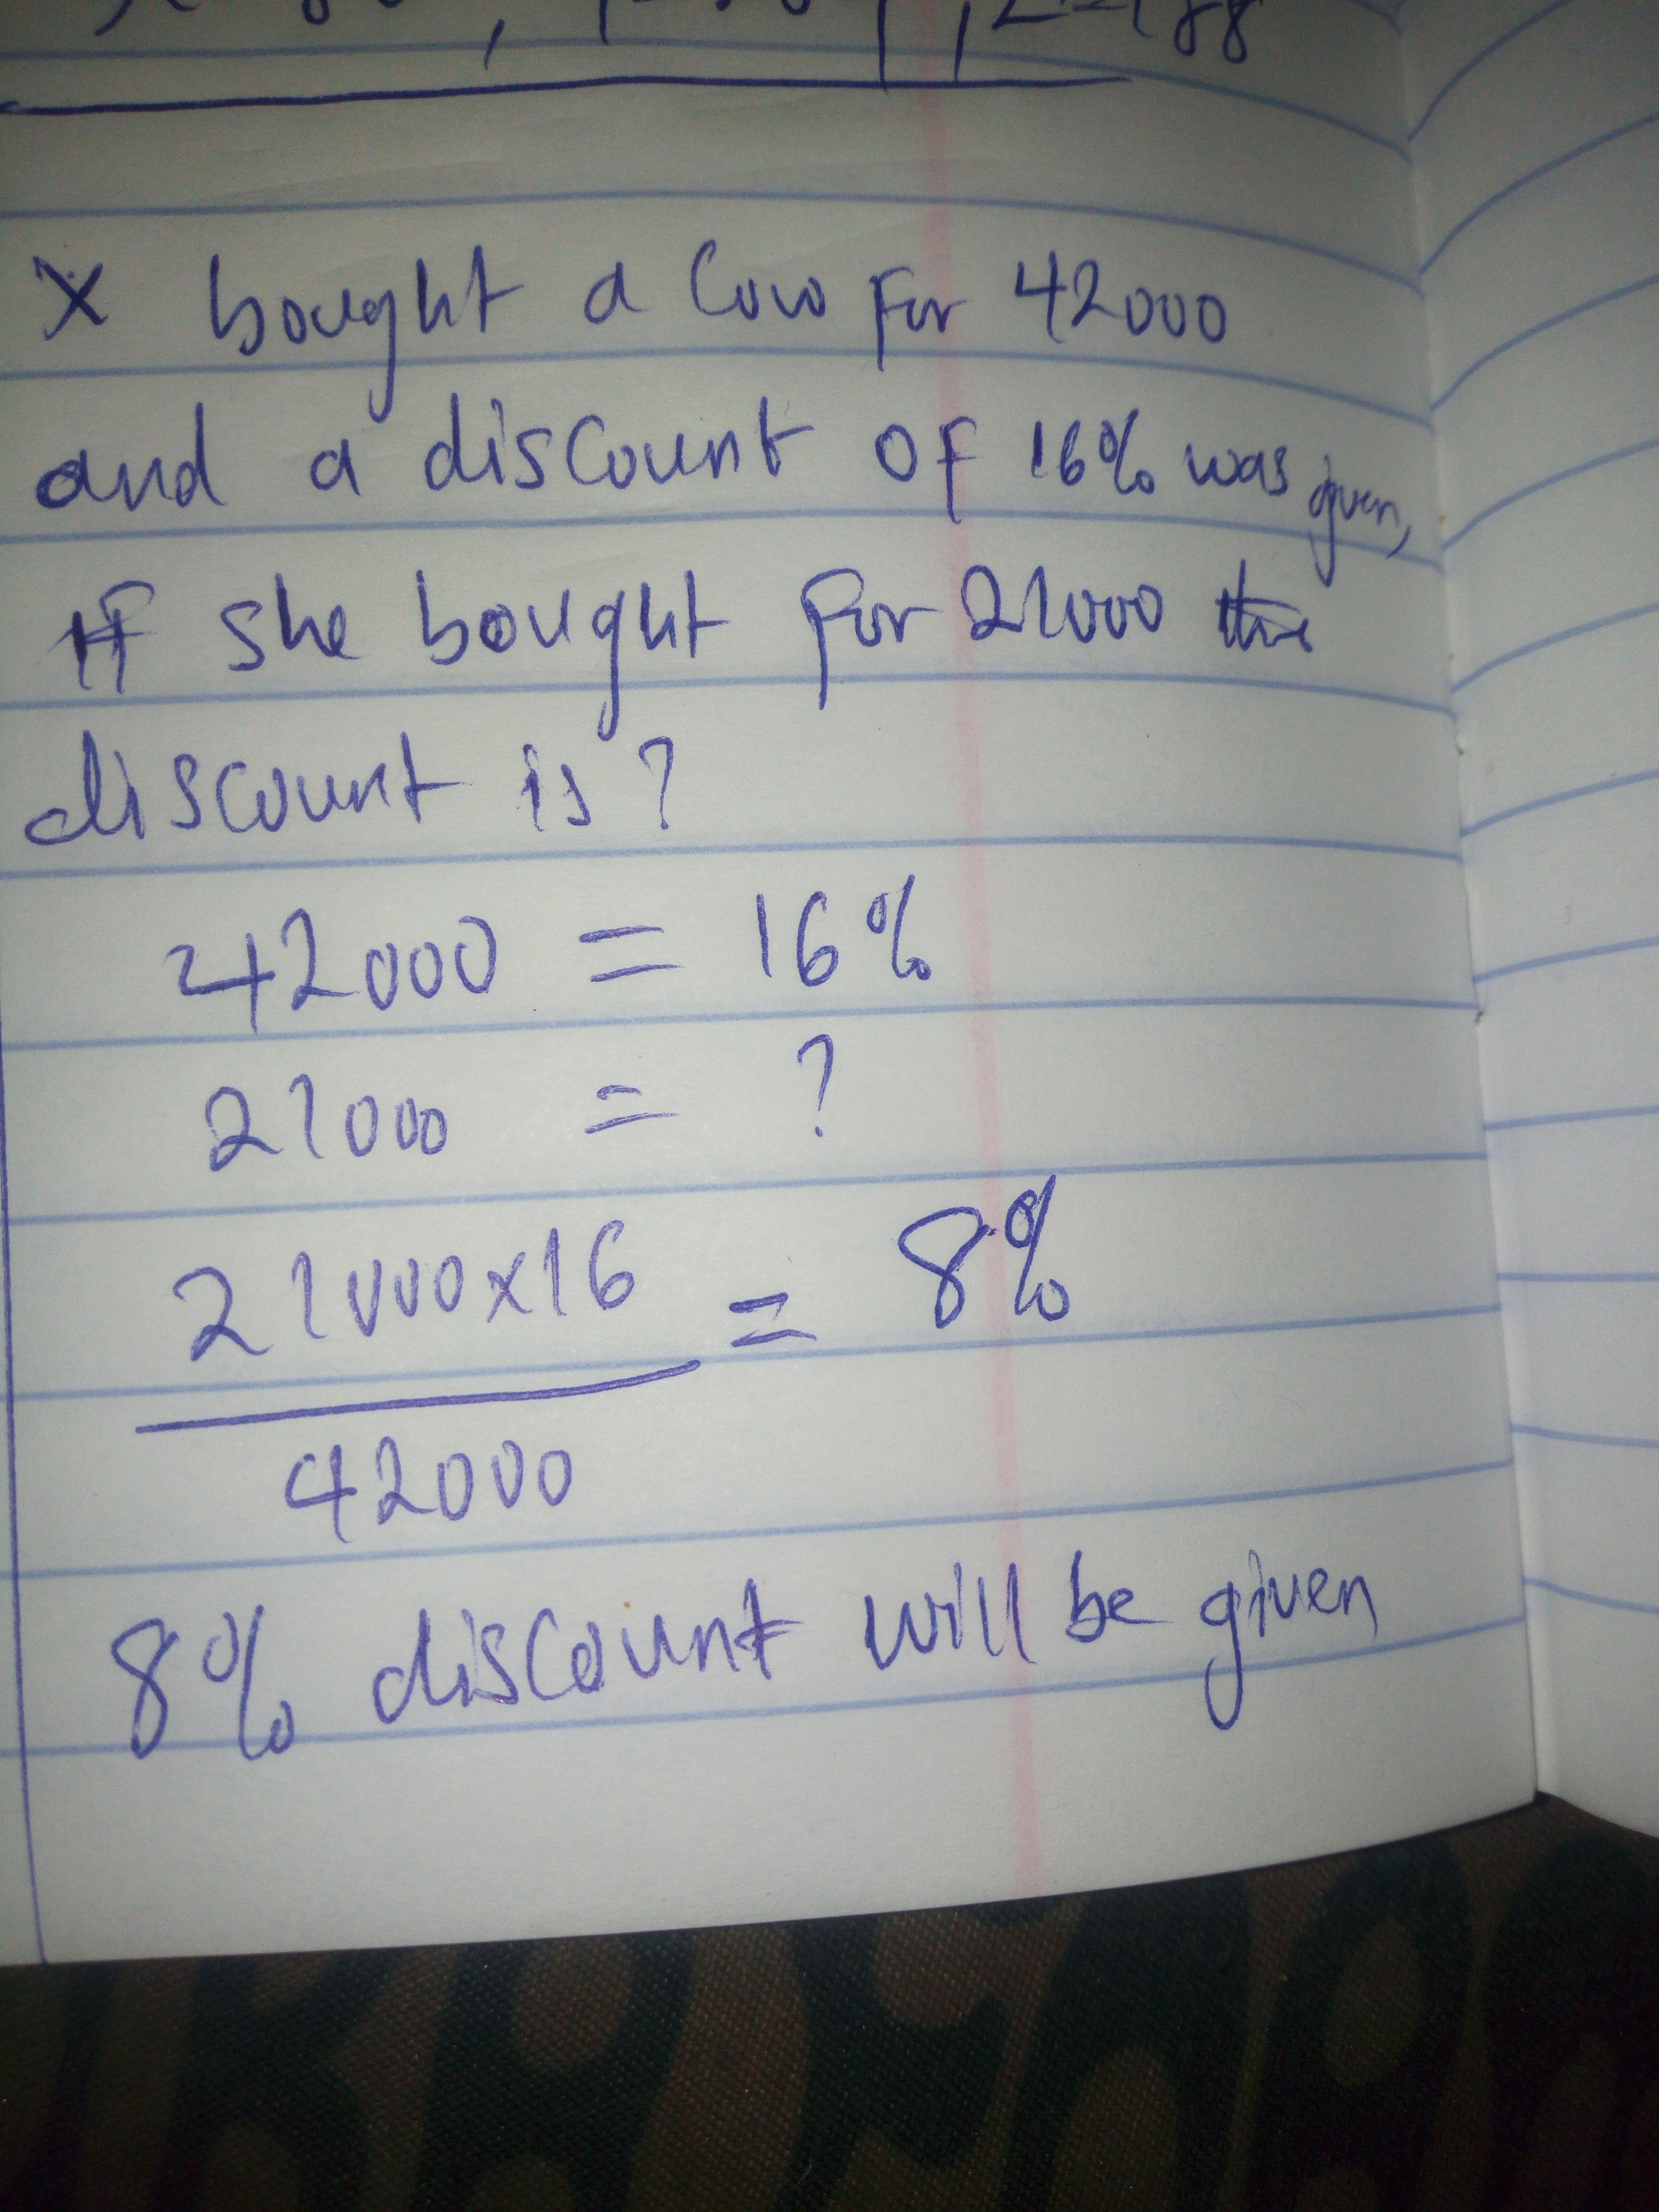 X bought a Cow For 42000
and a discount of 16% was given,
If she bought for 21000 the
discount is?
42000 = 16%
21000 = ?
21000x16 = 8%
42000
8% discount will be given